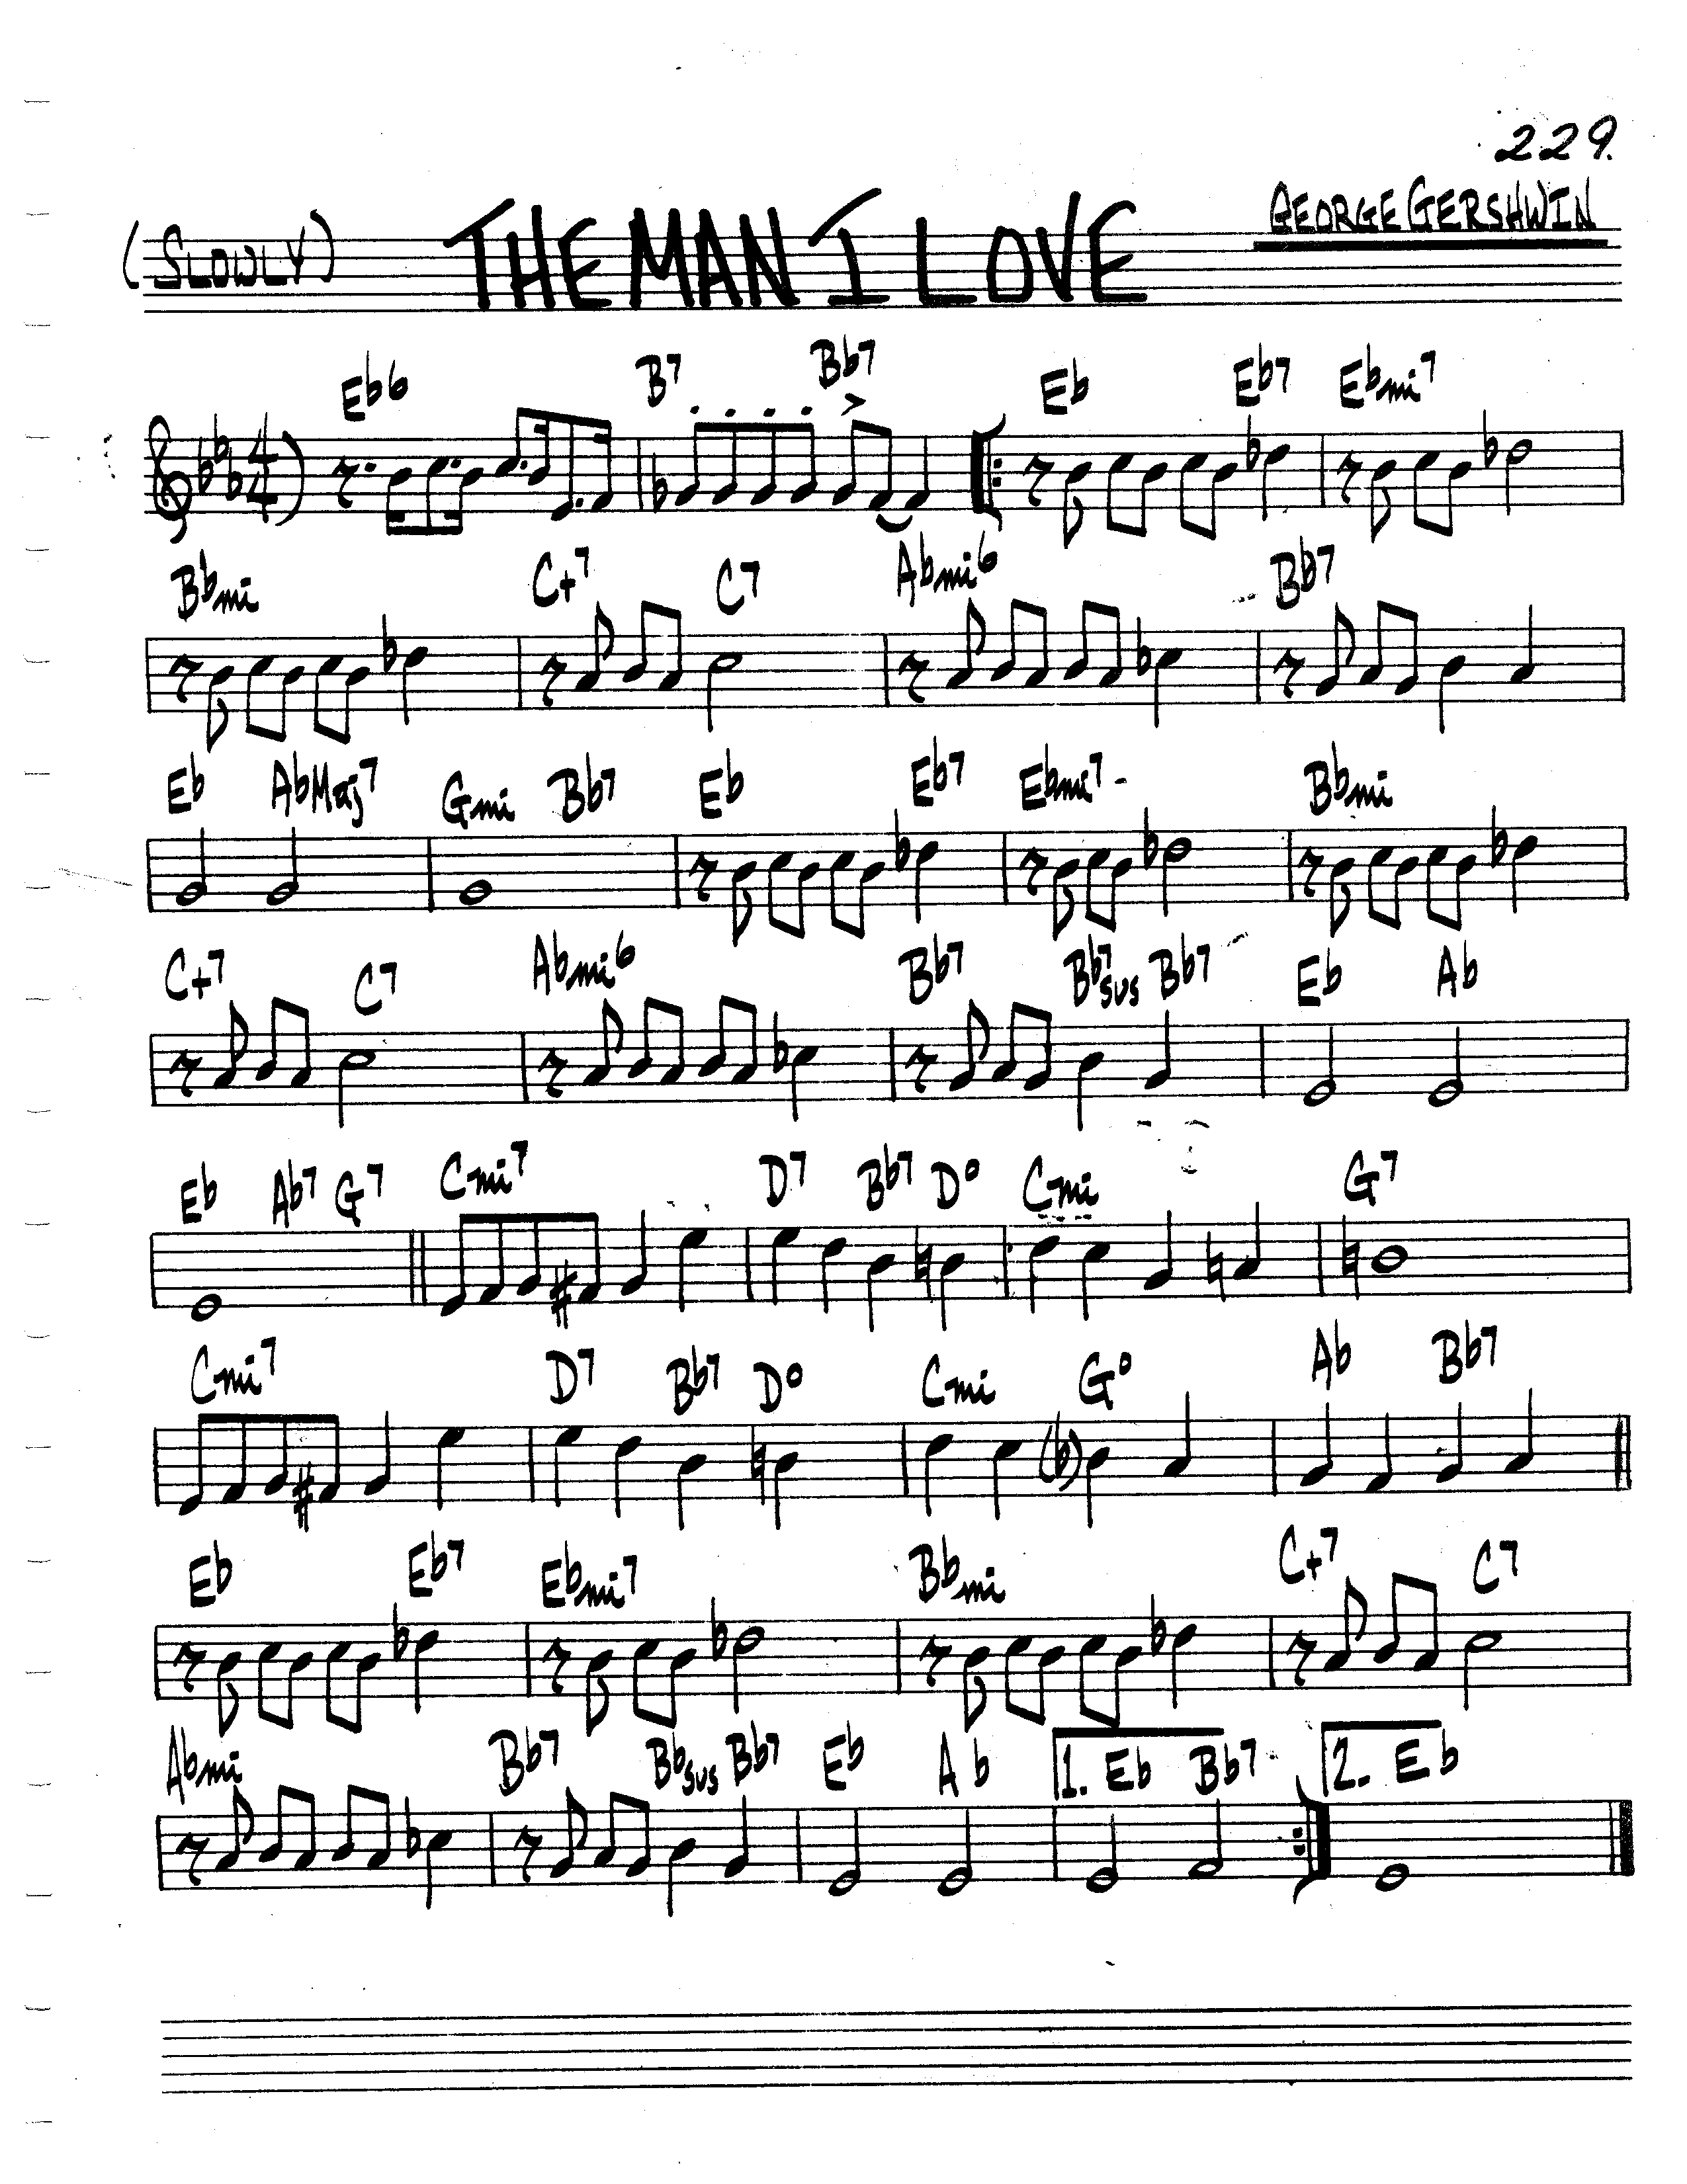 229.
(SLOWLY) THE MAN I LOVE GEORGE GERSHWIN
Eb6 B7 Bb7 Eb Eb7 Ebmi7
4/4
Bbmi C+7 C7 Abmi6 Bb7
Eb AbMaj7 Gmi Bb7 Eb Eb7 Ebmi7 Bbmi
C+7 C7 Abmi6 Bb7 Bb7sus Bb7 Eb Ab
Eb Ab7 G7 Cmi7 D7 Bb7 D° Cmi G7
Cmi7 D7 Bb7 D° Cmi G° Ab Bb7
(b)
Eb Eb7 Ebmi7 Bbmi C+7 C7
Abmi Bb7 Bbsus Bb7 Eb Ab 1. Eb Bb7 2. Eb